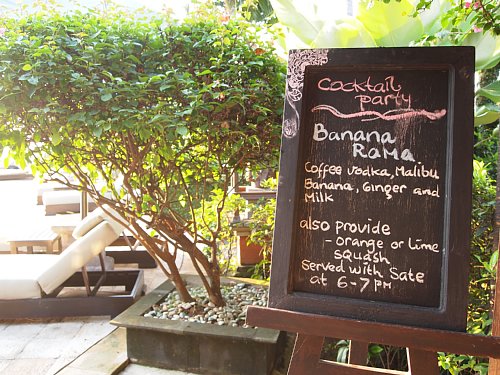 Cocktail
party
Banana
Rama
Coffee vodka, Malibu
Banana, Ginger and
Milk
also provide
- orange or lime
squash
Served with Sate
at 6-7pm